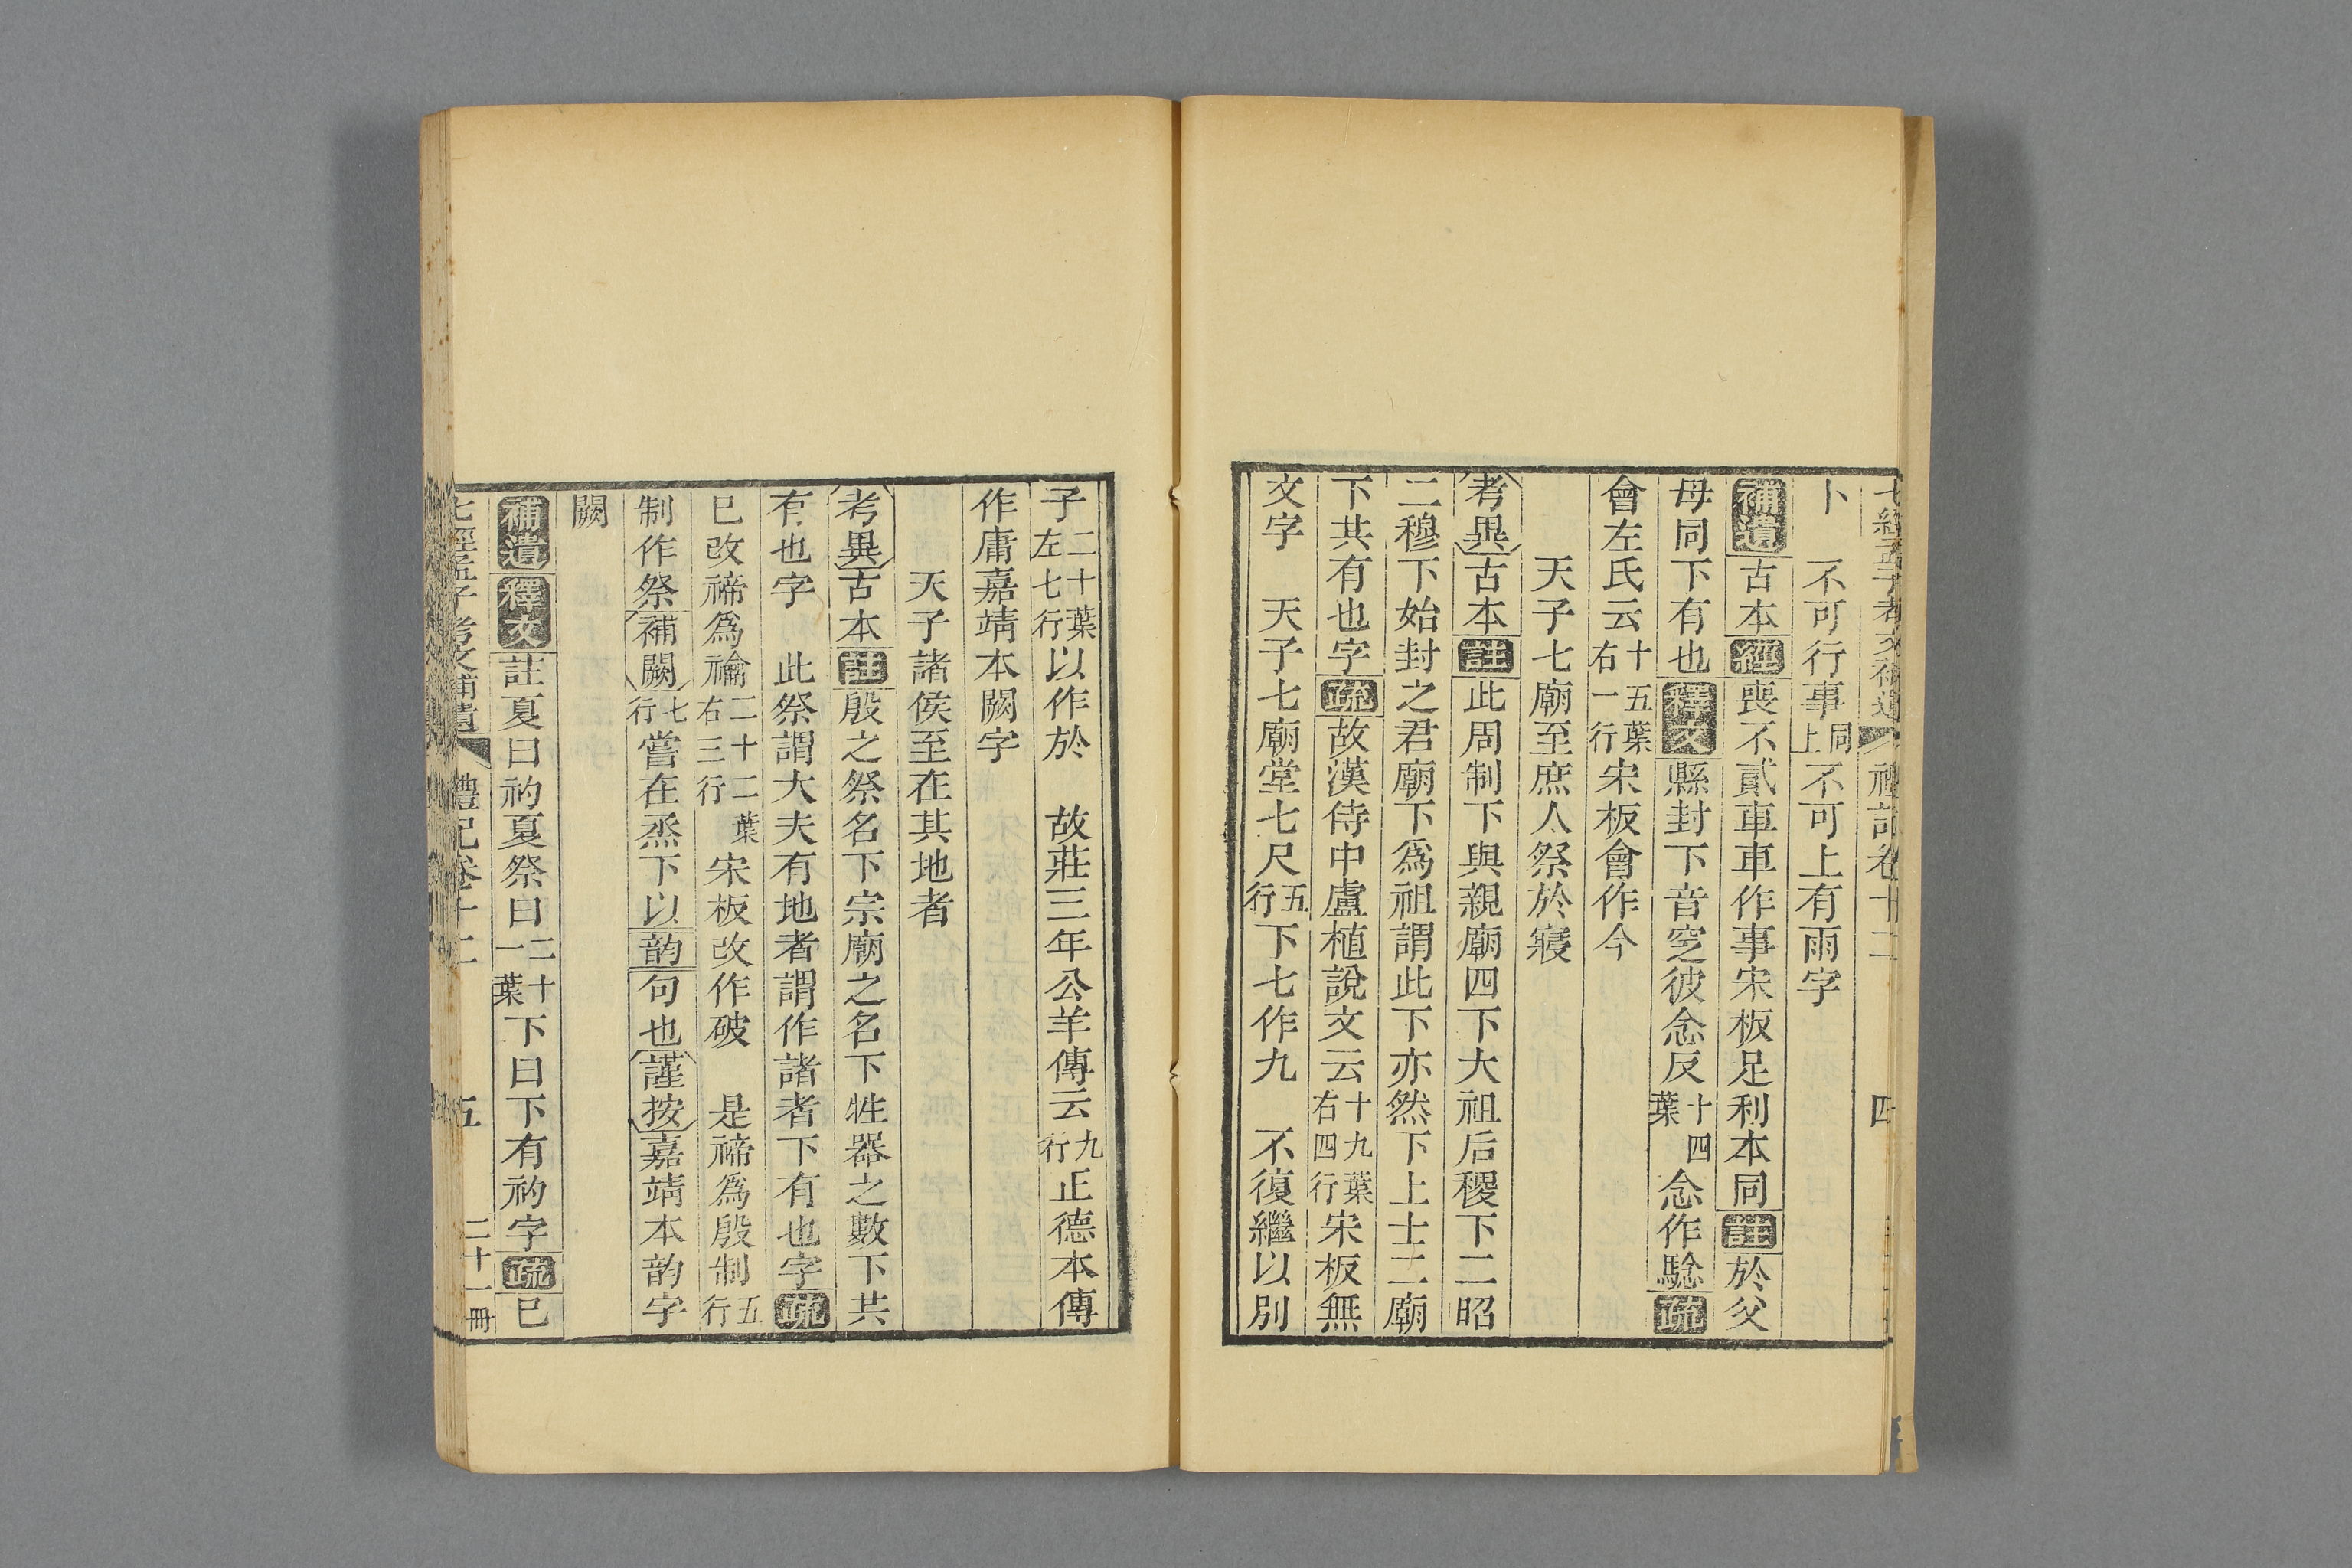 七經孟子考文補遺 禮記卷十二 四
卜 不可行事同上不可上有雨字
補遺古本經喪不貳車車作事宋板足利本同註於父
母同下有也釋文縣封下音窆彼念反十四葉念作騐疏
會左氏云十五葉右一行宋板會作今
天子七廟至庶人祭於寢
考異古本註此周制下與親廟四下大祖后稷下二昭
二穆下始封之君廟下爲祖謂此下亦然下上士二廟
下共有也字疏故漢侍中盧植說文云十九葉右四行宋板無
文字 天子七廟堂七尺五行下七作九 不復繼以別
子二十葉左七行以作於 故莊三年公羊傳云九行正德本傳
作庸嘉靖本闕字
天子諸侯至在其地者
考異古本註殷之祭名下宗廟之名下牲器之數下共
有也字 此祭謂大夫有地者謂作諸者下有也字疏
已改禘爲禴二十二葉右三行宋板改作破 是禘爲殷制五行
制作祭補闕七行嘗在烝下以韵句也謹按嘉靖本韵字
闕
補遺釋文註夏曰礿夏祭曰二十一葉下曰下有礿字疏已
七經孟子考文補遺 禮記卷十二 五 二十一冊